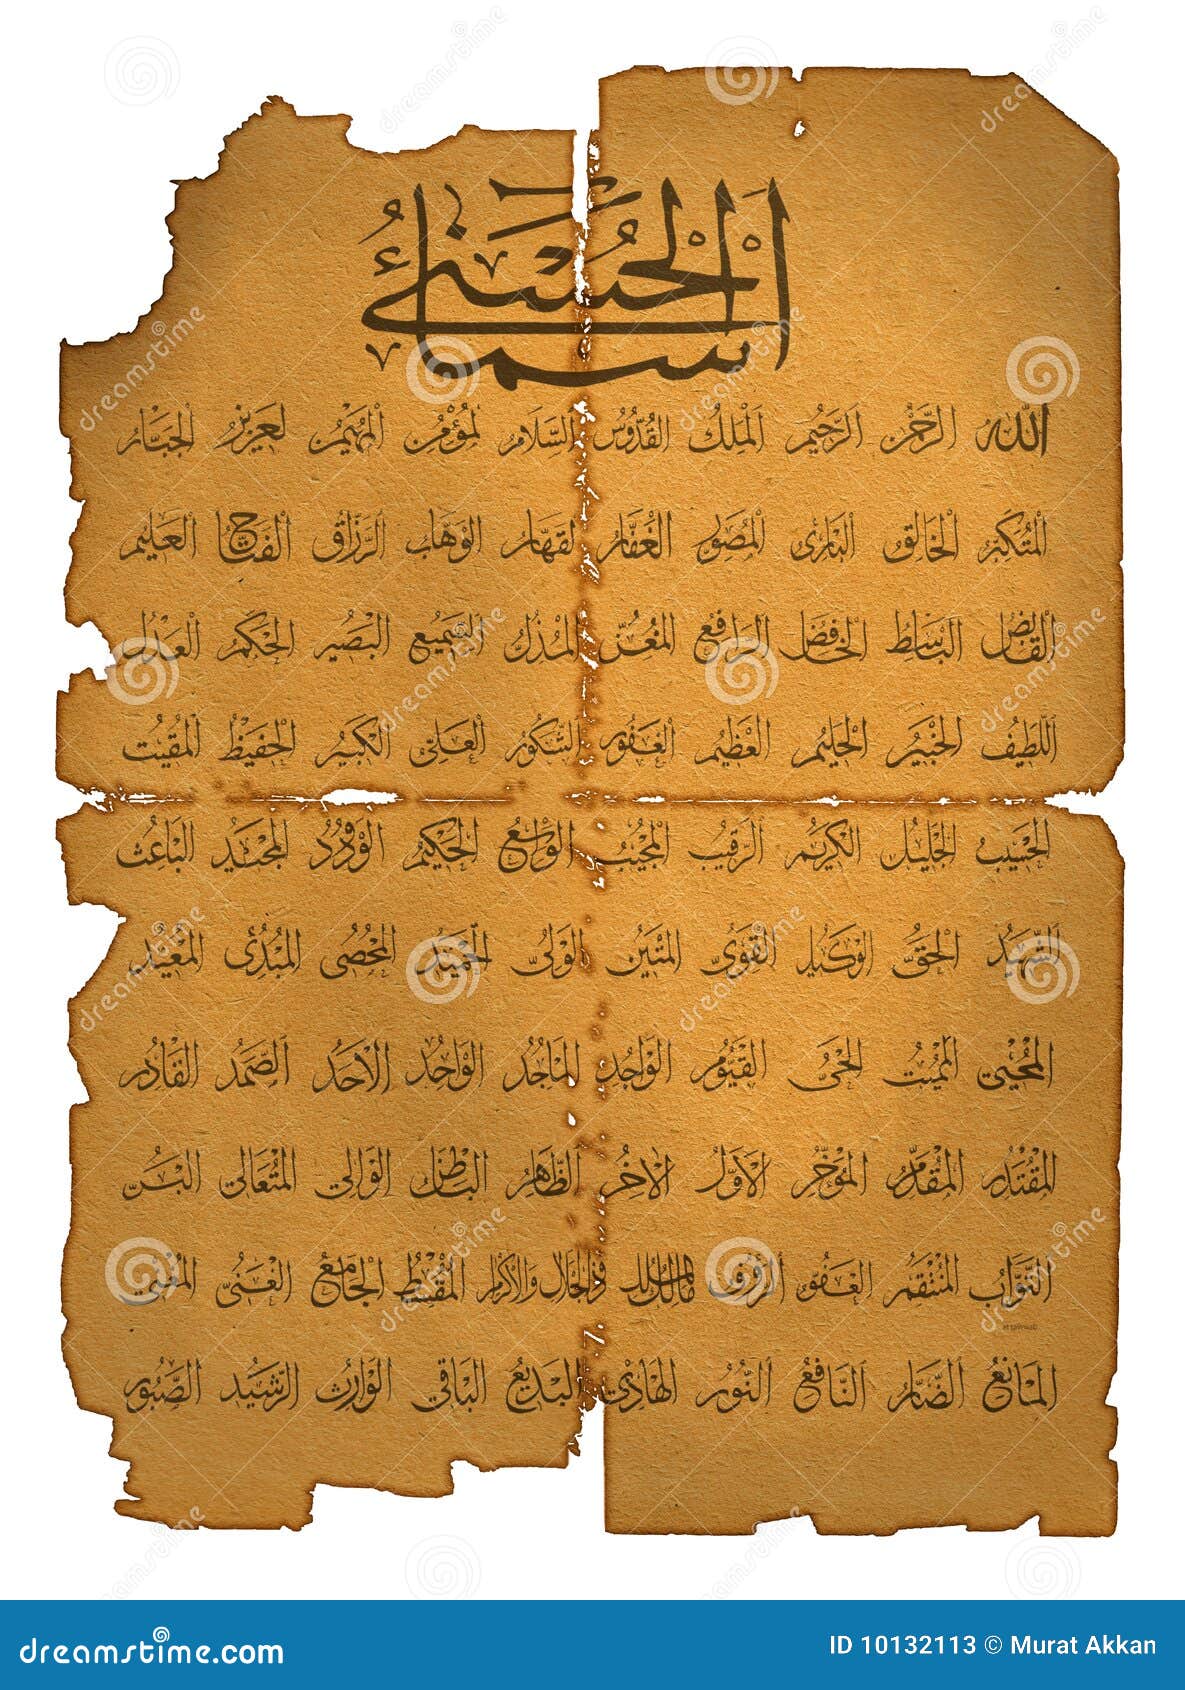 اسمائے الحسنى
الله الرحمن الرحيم الملك القدوس السلام المؤمن المهيمن العزيز الجبار
المتكبر الخالق البارئ المصور الغفار القهار الوهاب الرزاق الفتاح العليم
القابض الباسط الخافض الرافع المعز المذل السميع البصير الحكم العدل
اللطيف الخبير الحليم العظيم الغفور الشكور العلي الكبير الحفيظ المقيت
الحسيب الجليل الكريم الرقيب المجيب الواسع الحكيم الودود المجيد الباعث
الشهيد الحق الوكيل القوي المتين الولي الحميد المحصي المبدئ المعيد
المحيي المميت الحي القيوم الواجد الماجد الواحد الاحد الصمد القادر
المقتدر المقدم المؤخر الاول الاخر الظاهر الباطن الوالي المتعالي البر
التواب المنتقم العفو الرؤف مالك الملك ذوالجلال والاكرام المقسط الجامع الغني المغني
المانع الضار النافع النور الهادي البديع الباقي الوارث الرشيد الصبور
dreamstime.com
ID 10132113 © Murat Akkan